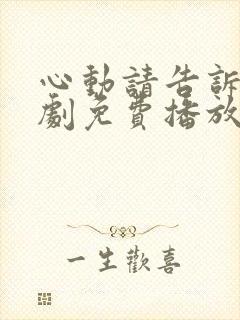 心動請告訴
劇免費播放
一生歡喜